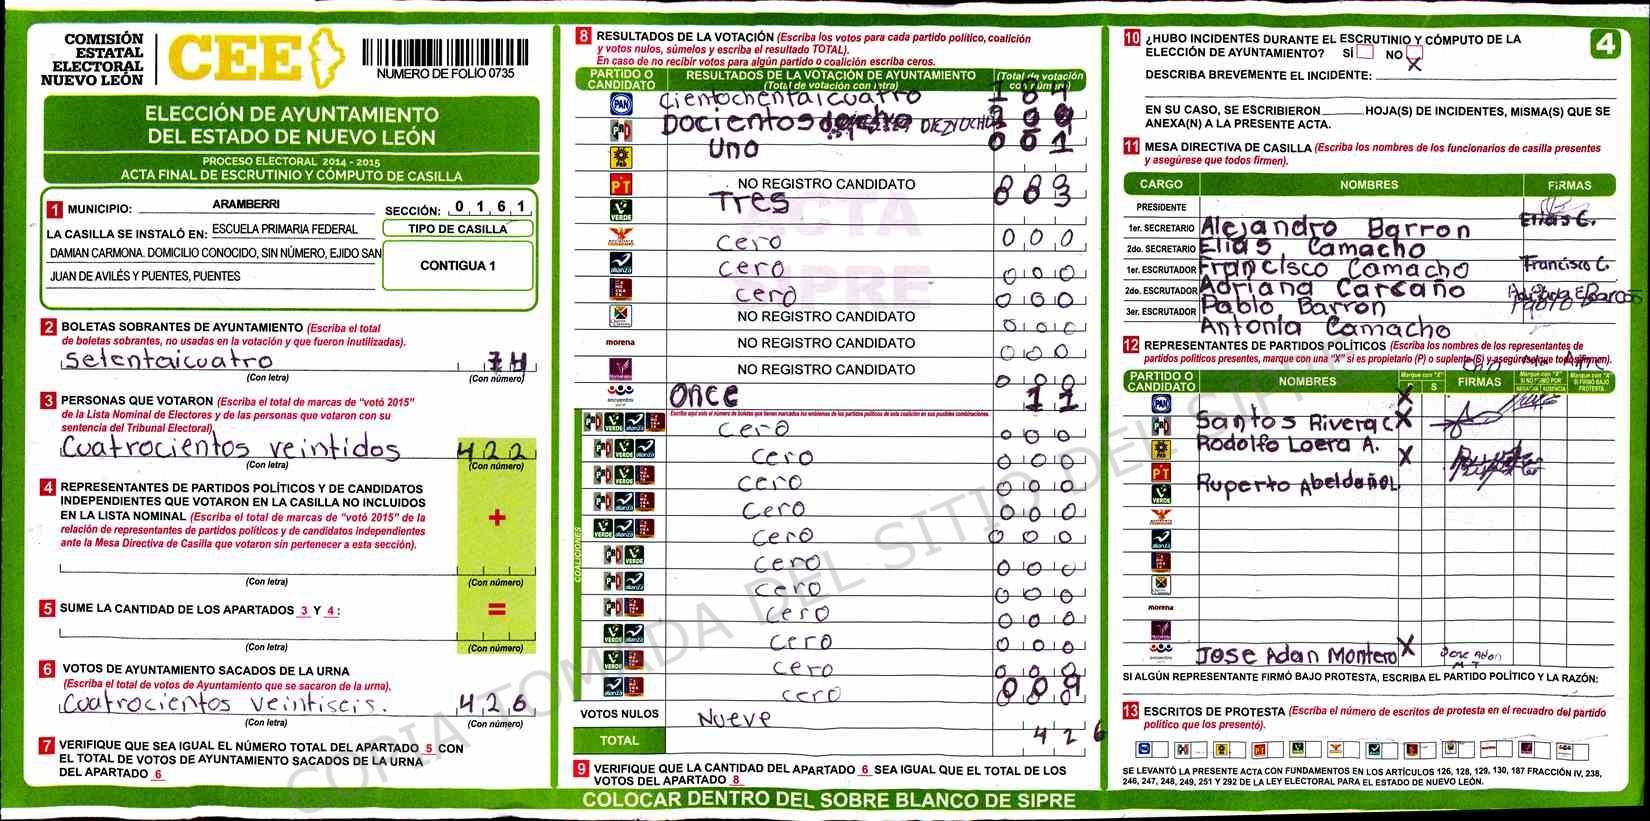 COMISIÓN
ESTATAL
ELECTORAL
NUEVO LEÓN
CEE
NUMERO DE FOLIO 0735
ELECCIÓN DE AYUNTAMIENTO
DEL ESTADO DE NUEVO LEÓN
PROCESO ELECTORAL 2014 - 2015
ACTA FINAL DE ESCRUTINIO Y CÓMPUTO DE CASILLA
1 MUNICIPIO: ARAMBERRI SECCIÓN: 0 1 6 1
LA CASILLA SE INSTALÓ EN: ESCUELA PRIMARIA FEDERAL
DAMIAN CARMONA. DOMICILIO CONOCIDO, SIN NÚMERO, EJIDO SAN
JUAN DE AVILÉS Y PUENTES, PUENTES
TIPO DE CASILLA
CONTIGUA 1
2 BOLETAS SOBRANTES DE AYUNTAMIENTO (Escriba el total
de boletas sobrantes, no usadas en la votación y que fueron inutilizadas).
setentaicuatro 74
(Con letra) (Con número)
3 PERSONAS QUE VOTARON (Escriba el total de marcas de "votó 2015"
de la Lista Nominal de Electores y de las personas que votaron con su
sentencia del Tribunal Electoral).
Cuatrocientos veintidos 422
(Con letra) (Con número)
4 REPRESENTANTES DE PARTIDOS POLÍTICOS Y DE CANDIDATOS
INDEPENDIENTES QUE VOTARON EN LA CASILLA NO INCLUIDOS
EN LA LISTA NOMINAL (Escriba el total de marcas de "votó 2015" de la
relación de representantes de partidos políticos y de candidatos independientes
ante la Mesa Directiva de Casilla que votaron sin pertenecer a esta sección).
+
(Con letra) (Con número)
5 SUME LA CANTIDAD DE LOS APARTADOS 3 Y 4:
=
(Con letra) (Con número)
6 VOTOS DE AYUNTAMIENTO SACADOS DE LA URNA
(Escriba el total de votos de Ayuntamiento que se sacaron de la urna).
Cuatrocientos veintiseis. 426
(Con letra) (Con número)
7 VERIFIQUE QUE SEA IGUAL EL NÚMERO TOTAL DEL APARTADO 5 CON
EL TOTAL DE VOTOS DE AYUNTAMIENTO SACADOS DE LA URNA
DEL APARTADO 6
8 RESULTADOS DE LA VOTACIÓN (Escriba los votos para cada partido político, coalición
y votos nulos, súmelos y escriba el resultado TOTAL).
En caso de no recibir votos para algún partido o coalición escriba ceros.
PARTIDO O CANDIDATO
RESULTADOS DE LA VOTACIÓN DE AYUNTAMIENTO
(Total de votación con letra)
(Total de votación con número)
PAN cientochentaicuatro 184
PRI Docientos DIEZIOCHO
PRD Uno 001
PT NO REGISTRO CANDIDATO
VERDE Tres 003
cero 000
alianza cero 000
cero 000
NO REGISTRO CANDIDATO 000
morena NO REGISTRO CANDIDATO 000
NO REGISTRO CANDIDATO 000
encuentro Once 11
Escriba aquí solo el número de boletas que tienen marcados los emblemas de los partidos políticos de esta coalición en sus posibles combinaciones.
COALICIONES
cero 000
cero 000
cero 000
cero 000
cero 000
cero 000
cero 000
cero 000
cero 000
cero 000
cero
VOTOS NULOS Nueve 009
TOTAL 426
9 VERIFIQUE QUE LA CANTIDAD DEL APARTADO 6 SEA IGUAL QUE EL TOTAL DE LOS
VOTOS DEL APARTADO 8
COLOCAR DENTRO DEL SOBRE BLANCO DE SIPRE
ACTA
SIPRE
COPIA TOMADA DEL SITIO DEL SIPRE
4
10 ¿HUBO INCIDENTES DURANTE EL ESCRUTINIO Y CÓMPUTO DE LA
ELECCIÓN DE AYUNTAMIENTO? SÍ NO X
DESCRIBA BREVEMENTE EL INCIDENTE:
EN SU CASO, SE ESCRIBIERON HOJA(S) DE INCIDENTES, MISMA(S) QUE SE
ANEXA(N) A LA PRESENTE ACTA.
11 MESA DIRECTIVA DE CASILLA (Escriba los nombres de los funcionarios de casilla presentes
y asegúrese que todos firmen).
CARGO NOMBRES FIRMAS
PRESIDENTE
Alejandro Barron Elias C.
1er. SECRETARIO
Elias Camacho
2do. SECRETARIO
Francisco Camacho Francisco C.
1er. ESCRUTADOR
Adriana Carcaño
2do. ESCRUTADOR
Pablo Barron
3er. ESCRUTADOR
Antonia Camacho
12 REPRESENTANTES DE PARTIDOS POLÍTICOS (Escriba los nombres de los representantes de
partidos políticos presentes, marque con una "X" si es propietario (P) o suplente (S) y asegúrese que todos firmen).
PARTIDO O CANDIDATO NOMBRES Marque con "X" S FIRMAS Marque con "X" SI NO FIRMÓ POR NEGATIVA AUSENCIA Marque con "X" SI FIRMÓ BAJO PROTESTA.
Santos Rivera C. X
Rodolfo Loera A. X
Ruperto Abeldaño L. X
morena
Jose Adan Montero X Jose Adan M T
SI ALGÚN REPRESENTANTE FIRMÓ BAJO PROTESTA, ESCRIBA EL PARTIDO POLÍTICO Y LA RAZÓN:
13 ESCRITOS DE PROTESTA (Escriba el número de escritos de protesta en el recuadro del partido
político que los presentó).
SE LEVANTÓ LA PRESENTE ACTA CON FUNDAMENTOS EN LOS ARTÍCULOS 126, 128, 129, 130, 187 FRACCIÓN IV, 238,
246, 247, 248, 249, 251 Y 292 DE LA LEY ELECTORAL PARA EL ESTADO DE NUEVO LEÓN.